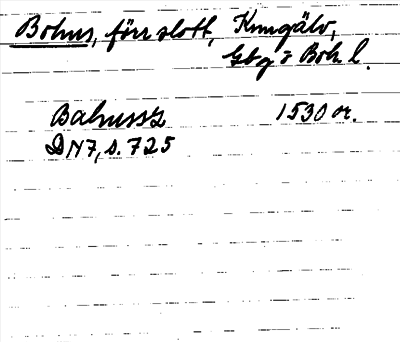 Bohus, förr slott, Kungälv,
Gbg o Boh. l.
Bahussz 1530 or.
DN7, s. 725